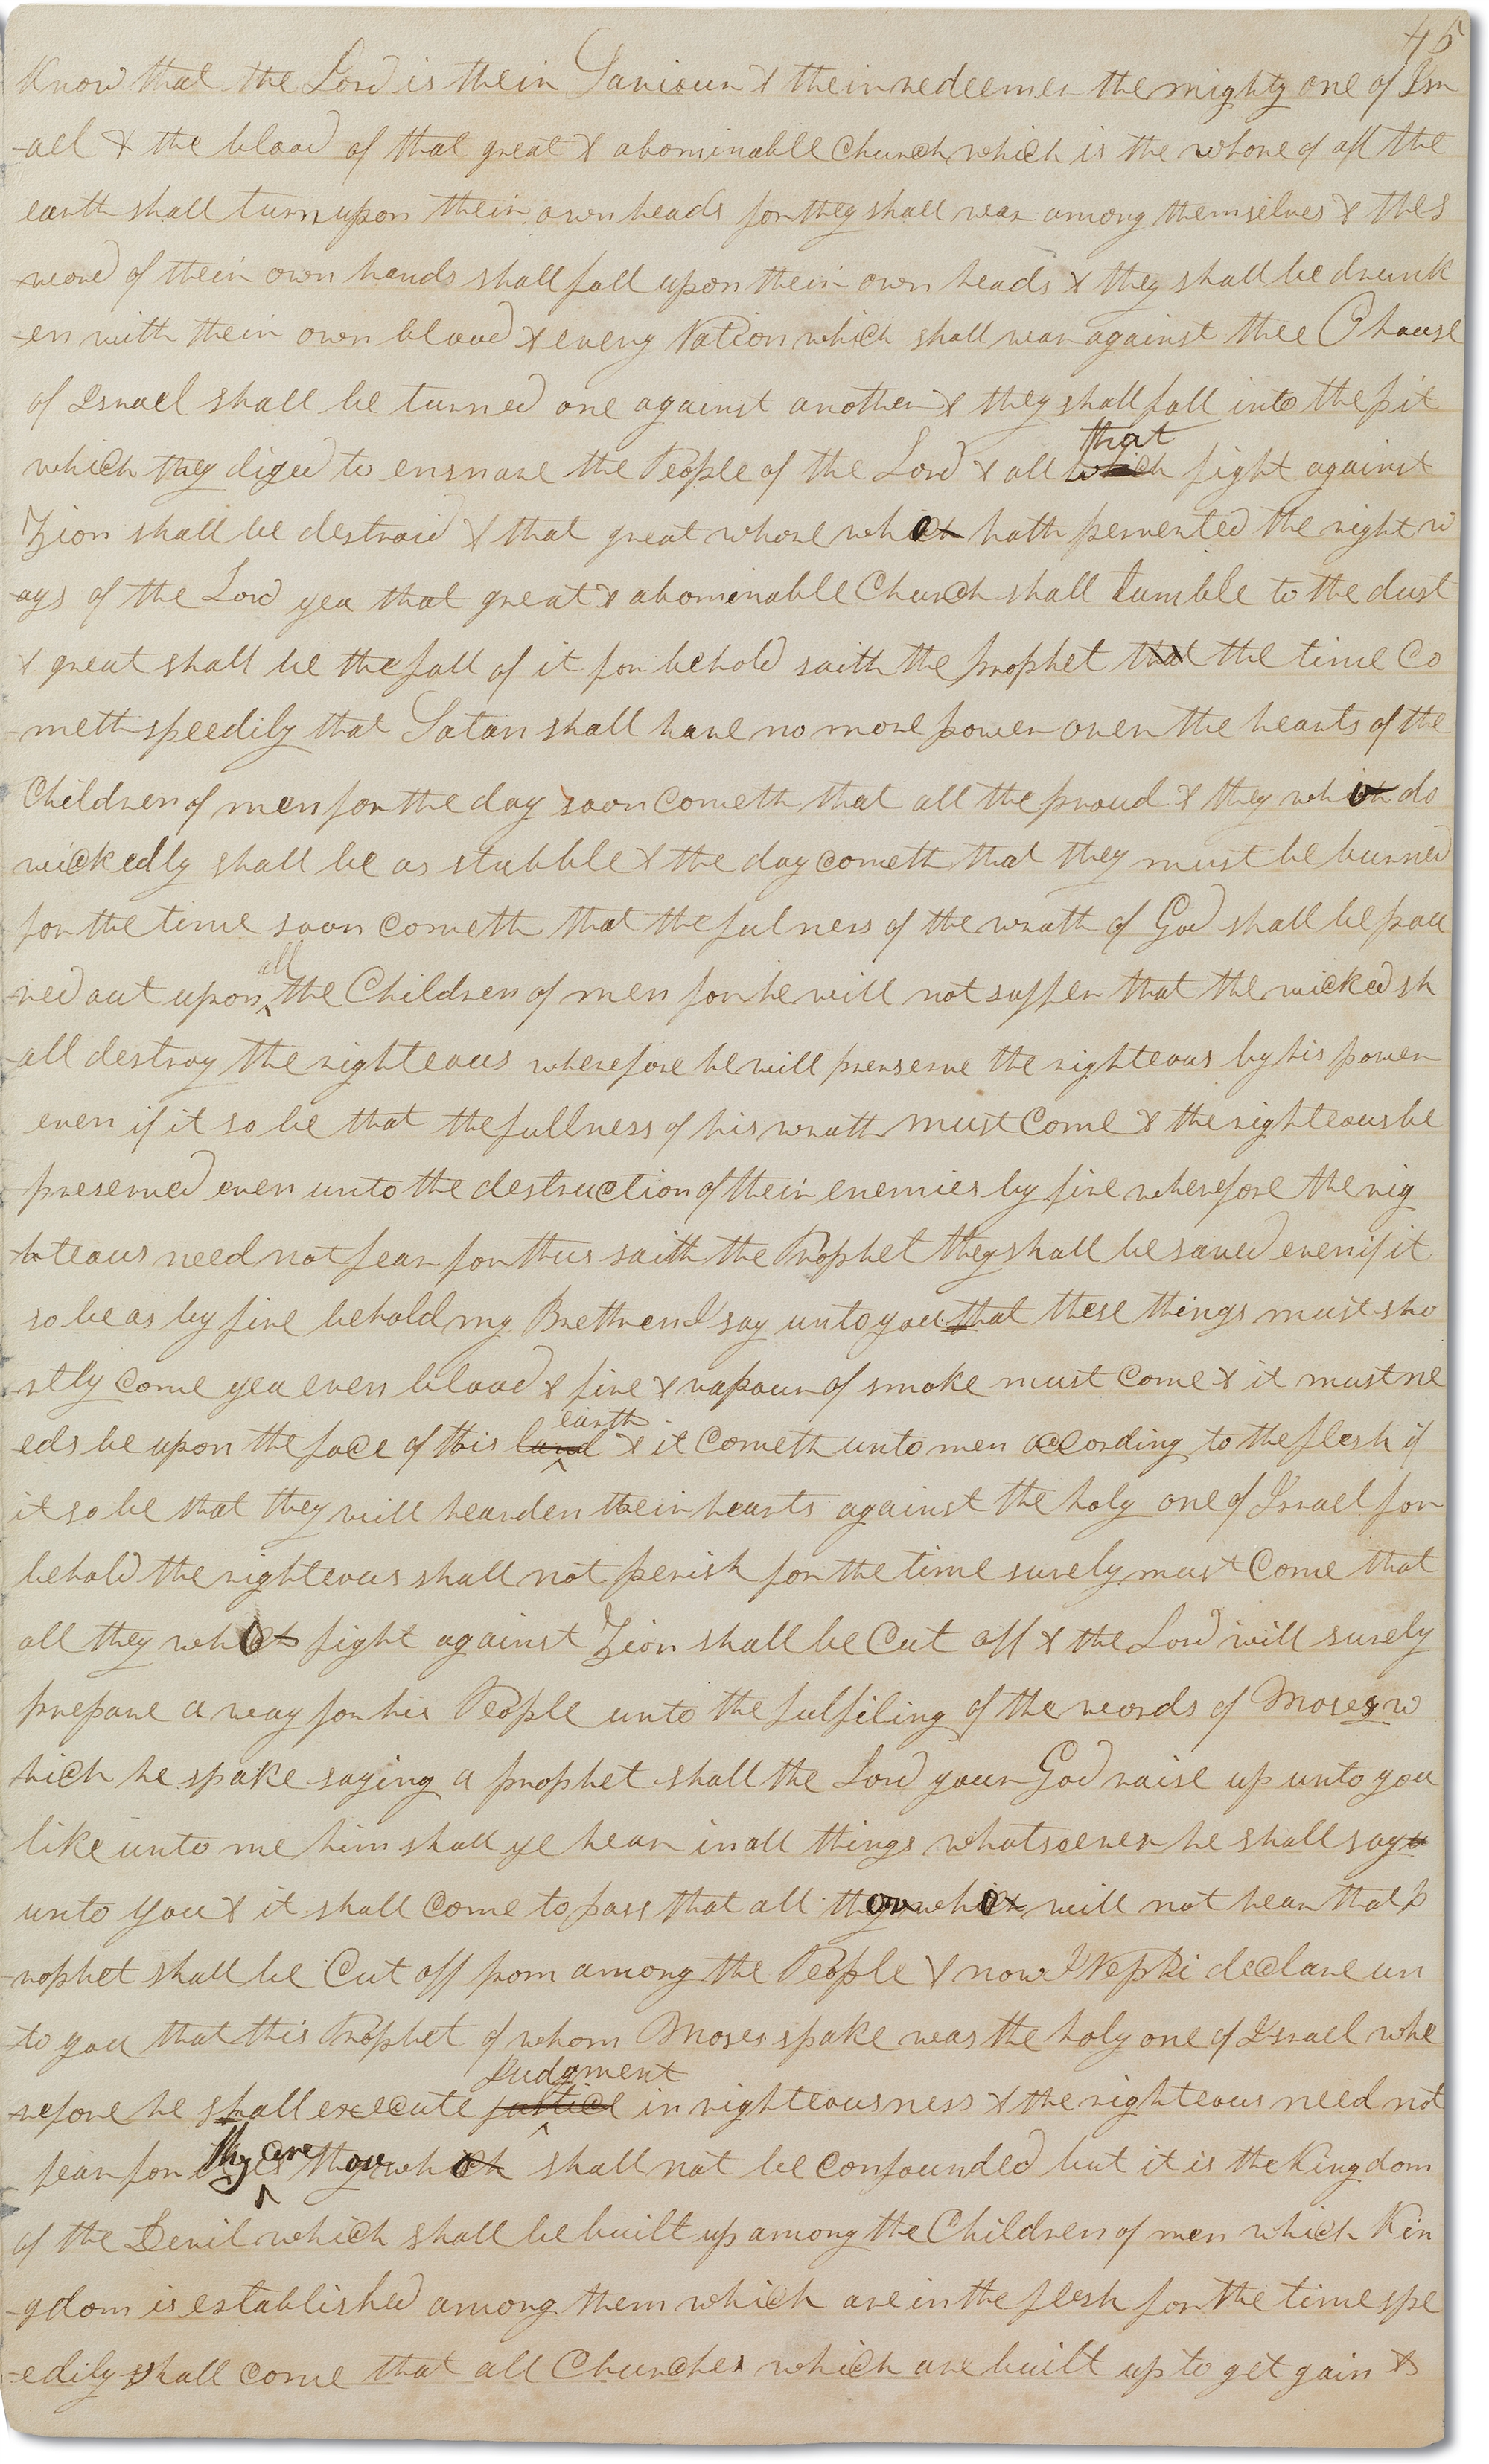 45
know that the Lord is their Saviour & their redeemer the mighty one of Isr
-ael & the blood of that great & abominable Church which is the whore of all the
earth shall turn upon their own heads for they shall war among themselves & the s
-word of their own hands shall fall upon their own heads & they shall be drunk
-en with their own blood & every Nation which shall war against thee O house
of Israel shall be turned one against another & they shall fall into the pit
that
which they diged to ensnare the People of the Lord & all which fight against
Zion shall be destroid & that great whore which hath perverted the right w
-ays of the Lord yea that great & abominable Church shall tumble to the dust
& great shall be the fall of it for behold saith the prophet that the time Co
-meth speedily that Satan shall have no more power over the hearts of the
Children of men for the day soon cometh that all the proud & they which do
wickedly shall be as stubble & the day cometh that they must be burned
for the time soon cometh that the fulness of the wrath of God shall be pou
all
red out upon ^ the Children of men for he will not suffer that the wicked sh
-all destroy the righteous wherefore he will prerserve the righteous by his power
even if it so be that the fullness of his wrath must Come & the righteous be
preserved even unto the destruction of their enemies by fire wherefore the rig
-hteous need not fear for thus saith the Prophet they shall be saved even if it
so be as by fire behold my Brethren I say unto you that these things must sho
-rtly come yea even blood & fire & vapour of smoke must come & it must ne
earth
eds be upon the face of this land ^ & it cometh unto men according to the flesh if
it so be that they will hearden their hearts against the holy one of Israel for
behold the righteous shall not perish for the time surely must Come that
all they which fight against Zion shall be Cut off & the Lord will surely
prepare a way for his People unto the fulfiling of the words of Moses w
hich he spake saying a prophet shall the Lord your God raise up unto you
like unto me him shall ye hear in all things whatsoever he shall say
unto you & it shall Come to pass that all those which will not hear that p
-rophet shall be Cut off from among the People & now I Nephi declare un
-to you that this Prophet of whom Moses spake was the holy one of Israel whe
Judgment
-refore he shall execute justice ^ in righteousness & the righteous need not
they are
fear for ^ those which shall not be confounded but it is the Kingdom
of the Devil which shall be built up among the Children of men which Kin
-gdom is established among them which are in the flesh for the time spe
-edily shall come that all Churches which are built up to get gain &